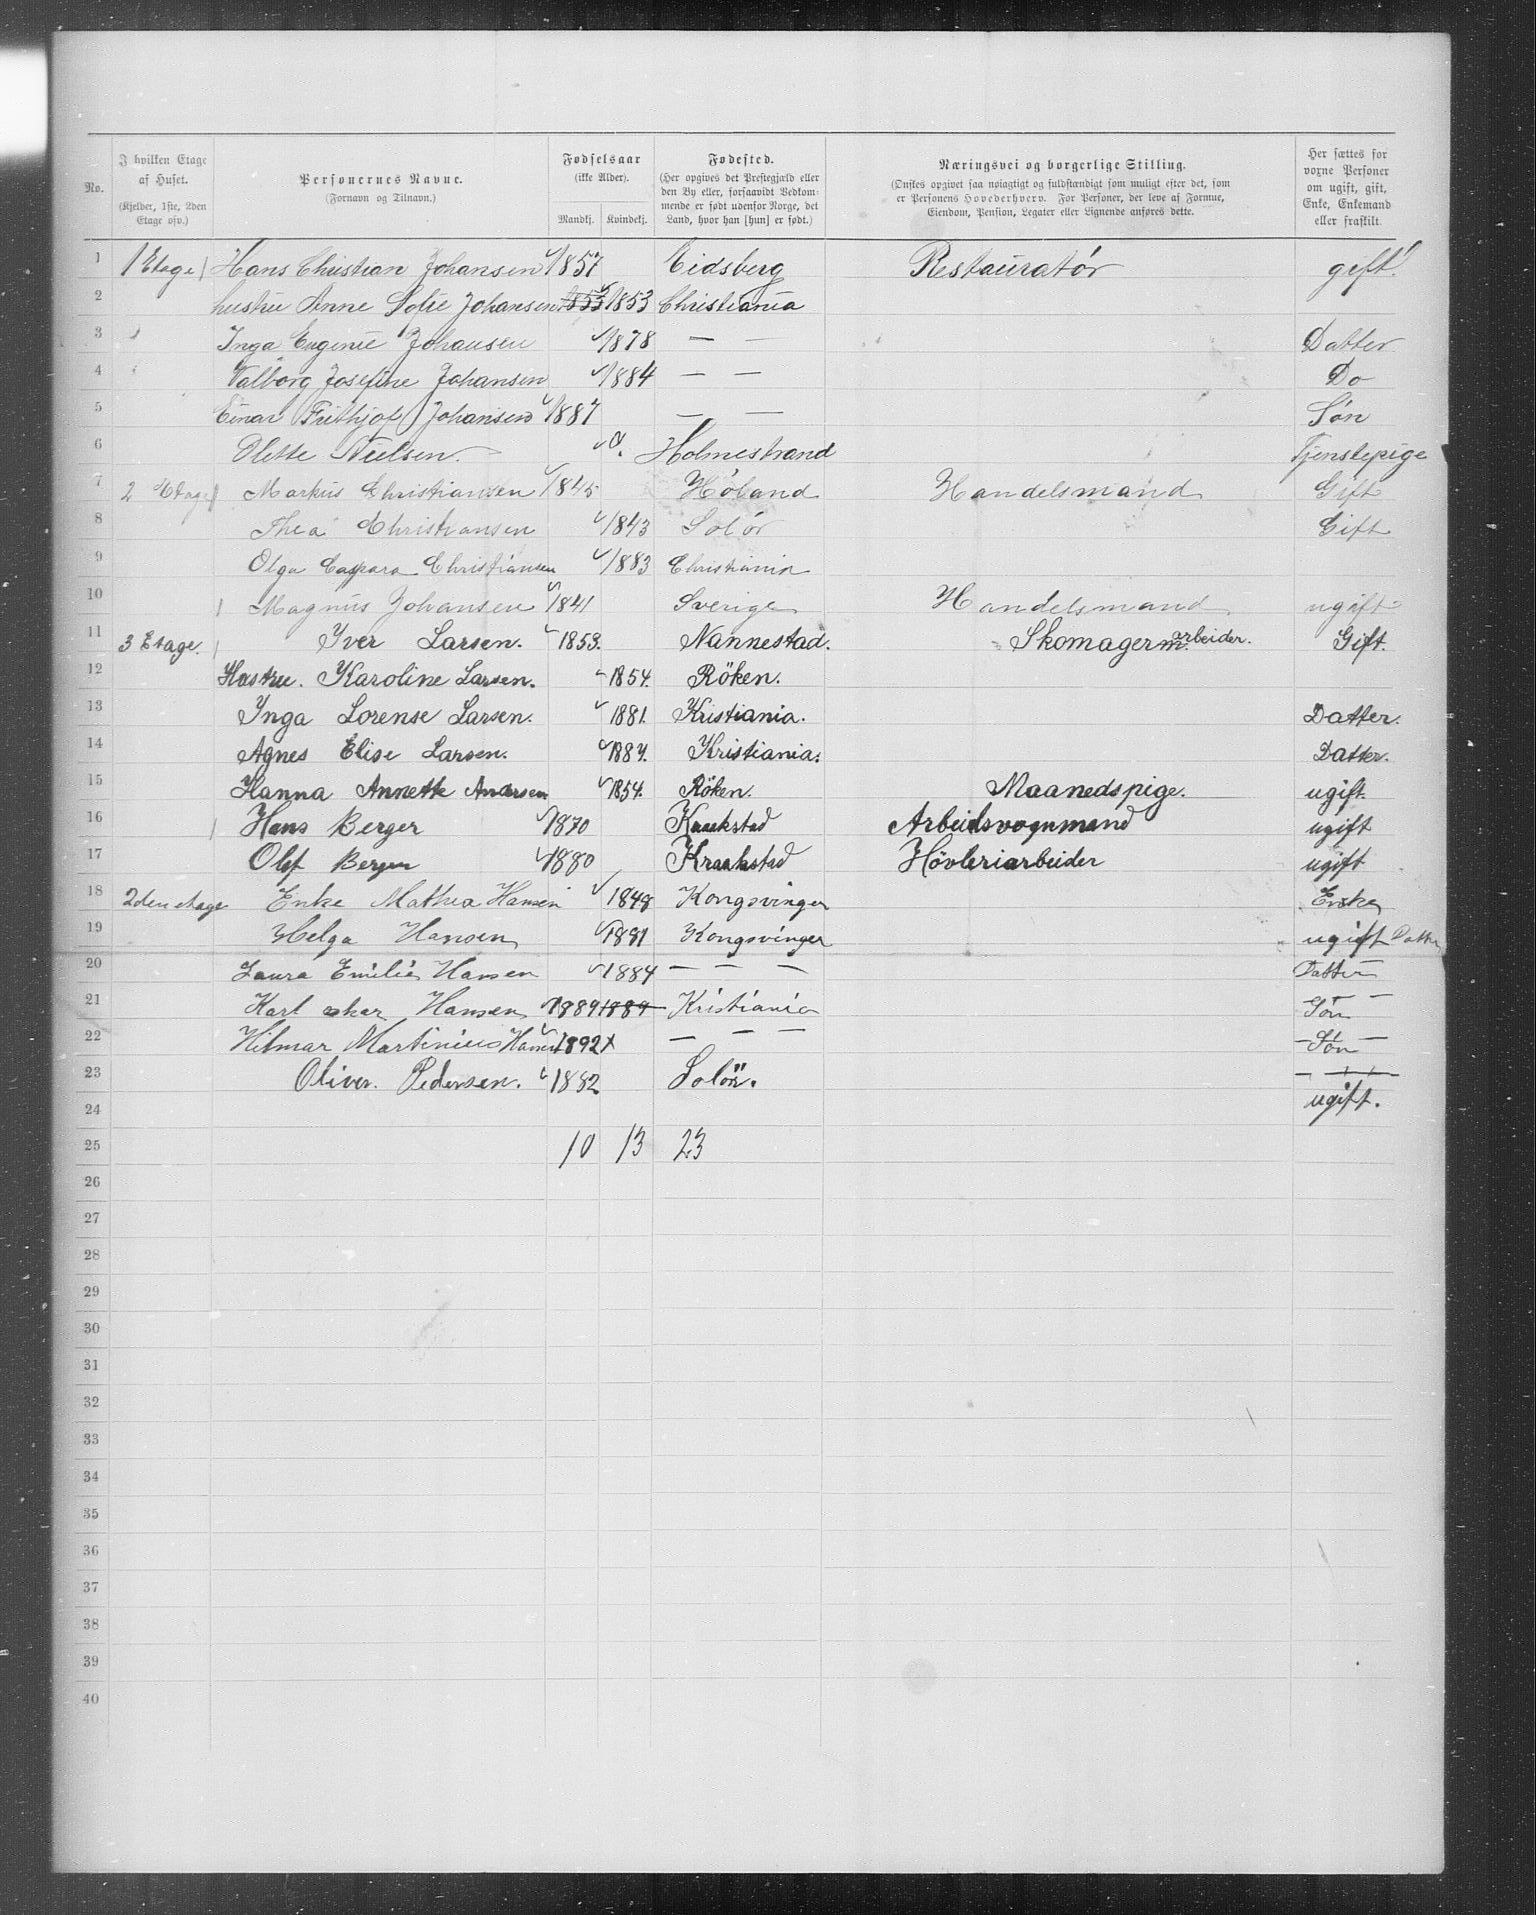 No. | I hvilken Etage af Huset. (Kjelder, 1ste, 2den Etage osv.) | Personernes Navne. (Fornavn og Tilnavn.) | Fødselsaar (ikke Alder). Mandkj. | Kvindekj. | Fødested. (Her opgives det Prestegjæld eller den By eller, forsaavidt Vedkommende er født udenfor Norge, det Land, hvor han [hun] er født.) | Næringsvei og borgerlige Stilling. (Ønskes opgivet saa nøiagtigt og fuldstændigt som muligt efter det, som er Personens Hovederhverv. For Personer, der leve af Formue, Eiendom, Pension, Legater eller Lignende anføres dette. | Her sættes for voxne Personer om ugift, gift, Enke, Enkemand eller fraskilt.
1 | 1 Etage | Hans Christian Johansen | 1857 | | Eidsberg | Restauratør | gift
2 | hustru Anne Sofie Johansen | 1853 | 1853 | Christiania
3 | Inga Eugenie Johansen | | 1878 | — — | | Datter
4 | Valborg Josefine Johansen | | 1884 | — — | | Do
5 | Einar Frithjof Johansen | 1887 | | — — | | Søn
6 | Olette Nielsen | | | Holmestrand | | Tjenstepige
7 | 2 Etage | Markus Christiansen | 1845 | | Høland | Handelsmand | Gift
8 | Thea Christiansen | | 1843 | Solør | | Gift
9 | Olga Caspara Christiansen | | 1883 | Christiania
10 | Magnus Johansen | 1841 | | Sverige | Handelsmand | ugift
11 | 3 Etage. | Iver Larsen. | 1853. | | Nannestad. | Skomagerm. arbeider. | Gift.
12 | Hustru. Karoline Larsen. | | 1854. | Röken.
13 | Inga Lorense Larsen. | | 1881. | Kristiania. | | Datter.
14 | Agnes Elise Larsen. | | 1887. | Kristiania. | | Datter.
15 | Hanna Annette Andersen | | 1854. | Röken. | Maanedspige. | ugift.
16 | Hans Berger | 1870 | | Kraakstad | Arbeidsvognmand | ugift
17 | Olaf Berger | 1880 | | Kraakstad | Hövleriarbeider | ugift
18 | 2den etage | Enke Mathea Hansen | | 1848 | Kongsvinger | | Enke
19 | Helga Hansen | | 1881 | Kongsvinger | | ugift Datter
20 | Laura Emilie Hansen | | 1884 | — — — | | Datter
21 | Karl oskar Hansen | 1889 | 1889 | Kristiania | | Søn
22 | Hilmar Martinius Hansen | 1892 | x | — — — | | Søn
23 | Oliver. Pedersen. | 1882 | | Solör.
24 | ugift.
25 | 10 | 13 | 23
26
27
28
29
30
31
32
33
34
35
36
37
38
39
40